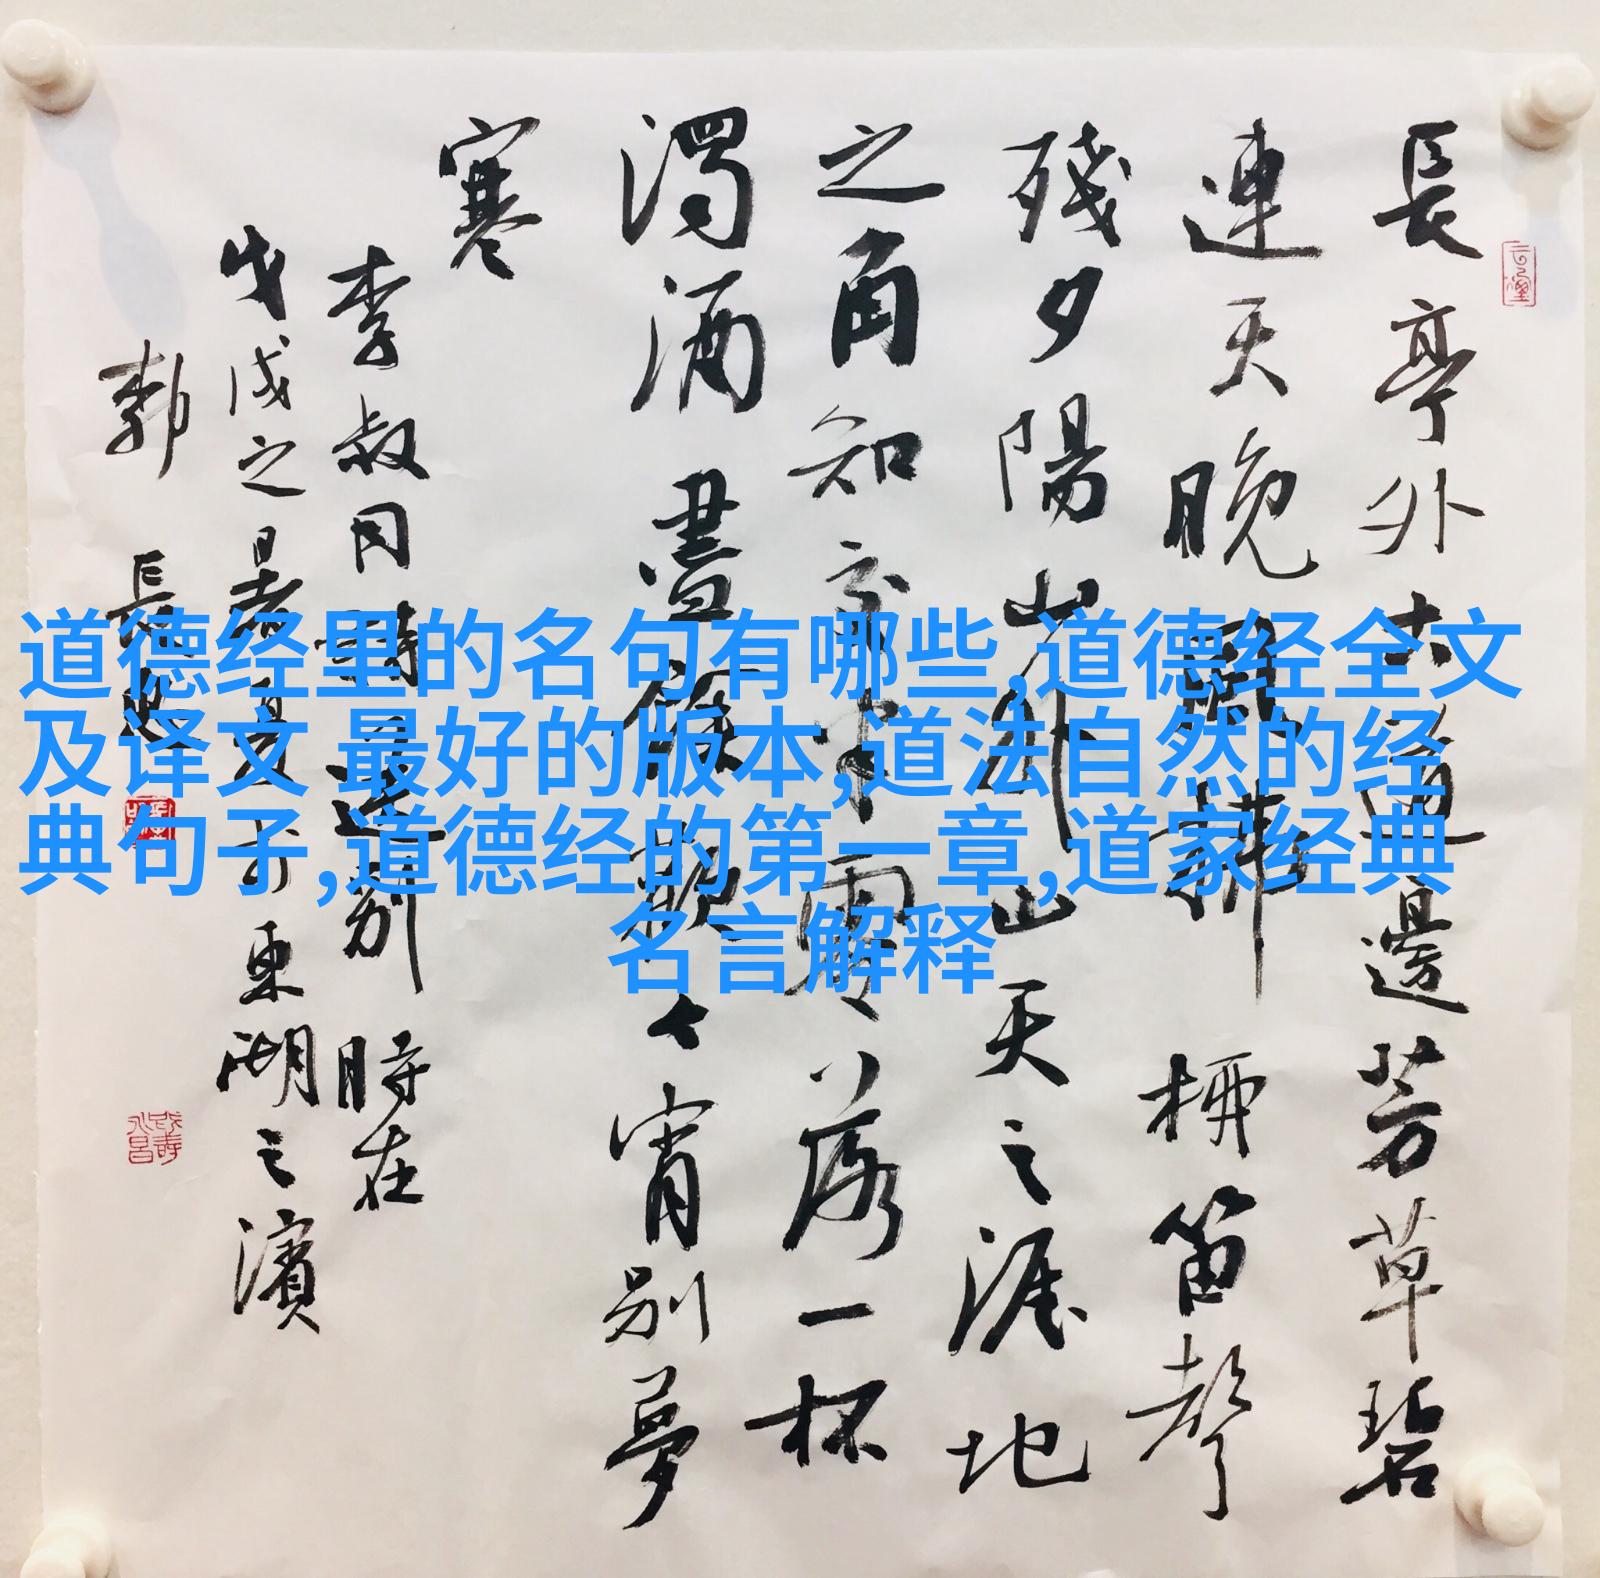 道德经里的名句有哪些,道德经全文
及译文 最好的版本,道法自然的经
典句子,道德经的第一章,道家经典
名言解释
長亭外古道邊芳草碧
連天晚風拂柳笛聲
殘夕陽山外山天之涯地
之角知交半零落一杯
濁酒盡餘歡今宵别夢
寒
李叔同詩送别 時在
戊戌之暑月於東湖之濱